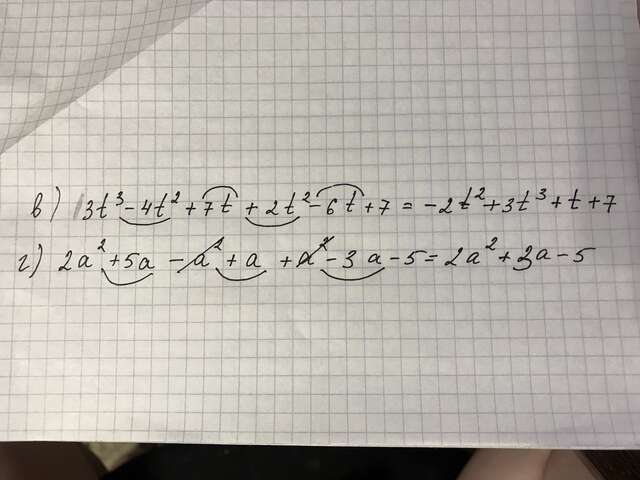 в) 3t³ - 4t² + 7t + 2t² - 6t + 7 = -2t² + 3t³ + t + 7
г) 2a² + 5a - a² + a + a² - 3a - 5 = 2a² + 3a - 5